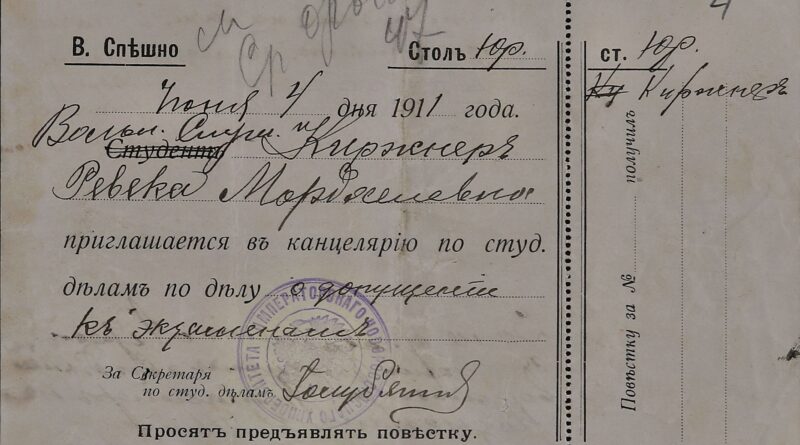 В. Спѣшно
Столъ Юр.
Іюня 4 дня 1911 года.
Вольн. Слуш.
Студентъ Киржнеръ
Ревека Мордхелевна
приглашается въ канцелярію по студ.
дѣламъ по дѣлу о допущеніи
къ экзаменамъ
За Секретаря
по студ. дѣламъ
Просятъ предъявлять повѣстку.
ст. Юр.
Ку Киржнеръ
Повѣстку за № получилъ